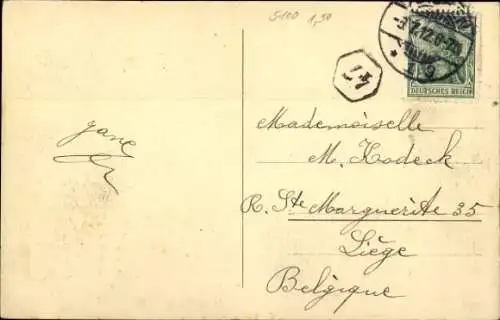 5100 1,50
DEUTSCHES REICH
Mademoiselle
M. Kodeck
R. Ste Marguerite 35
Liège
Belgique